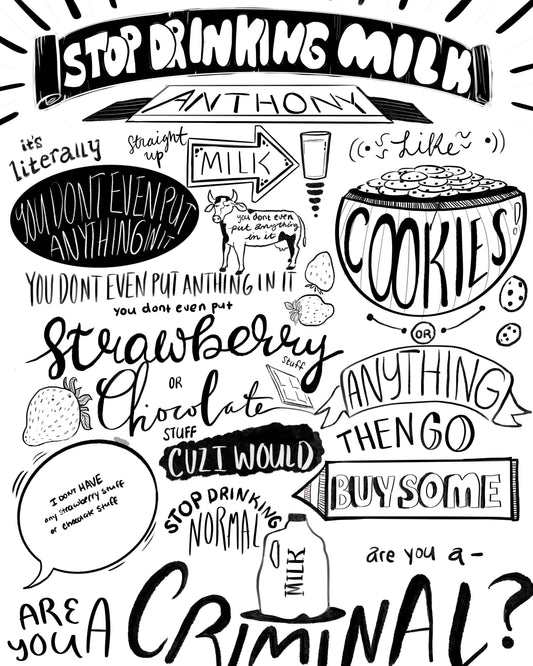 STOP DRINKING MILK
ANTHONY
it's
literally
straight
up
MILK
YOU DONT EVEN PUT
ANYTHING IN IT
you dont even
put anything
in it
YOU DONT EVEN PUT ANTHING IN IT
you dont even put
strawberry
stuff
OR
Chocolate
STUFF
CUZ I WOULD
I DONT HAVE
any strawberry stuff
or chocolate stuff
Like
COOKIES!
OR
ANYTHING
THEN GO
BUY SOME
STOP DRINKING
NORMAL
MILK
are you a-
ARE
YOU A
CRIMINAL?